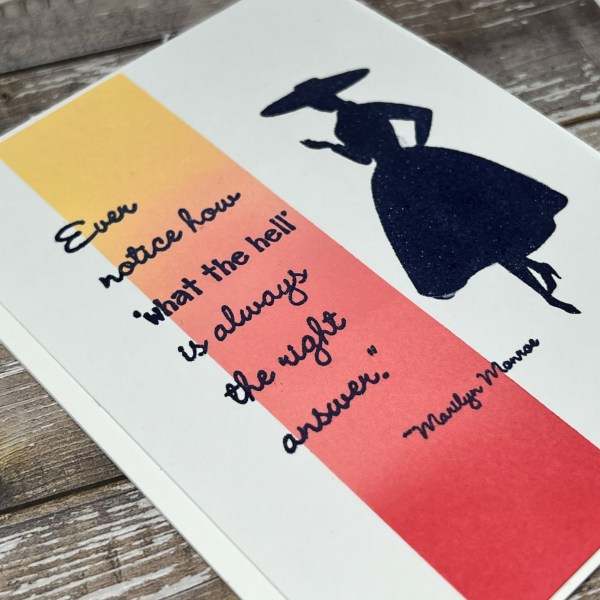 Ever
notice how
'what the hell'
is always
the right
answer."
~Marilyn Monroe